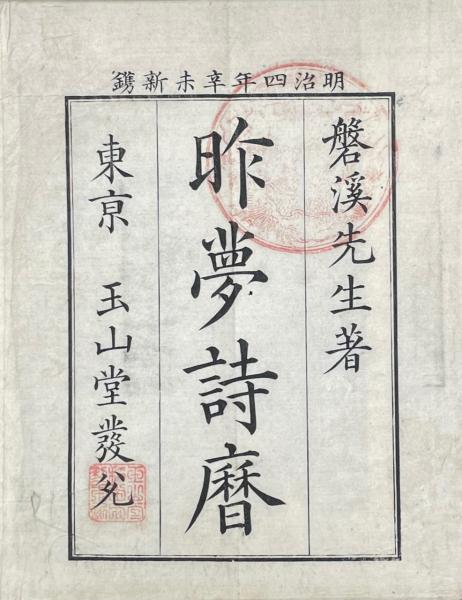 明治四年辛未新鐫
磐溪先生著
昨夢詩曆
東京 玉山堂發兌